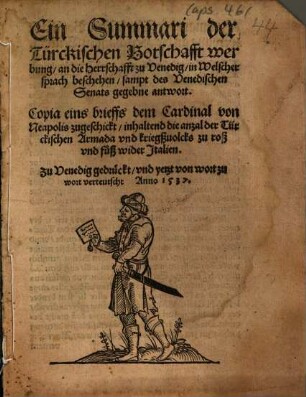 Caps. 46/
44
Ein Summari der
Türckischen Botschafft wer
bung / an die herrschafft zu Venedig / in Welscher
sprach beschehen / sampt des Venedischen
Senats gegebne antwort.
Copia eins brieffs dem Cardinal von
Neapolis zugeschickt / inhaltend die anzal der Tür
ckischen Armada vnd kriegßuolcks zu roß
vnd fůß wider Italien.
Zu Venedig gedruckt / vnd yetzt von wort zu
wort verteutscht Anno 1537.